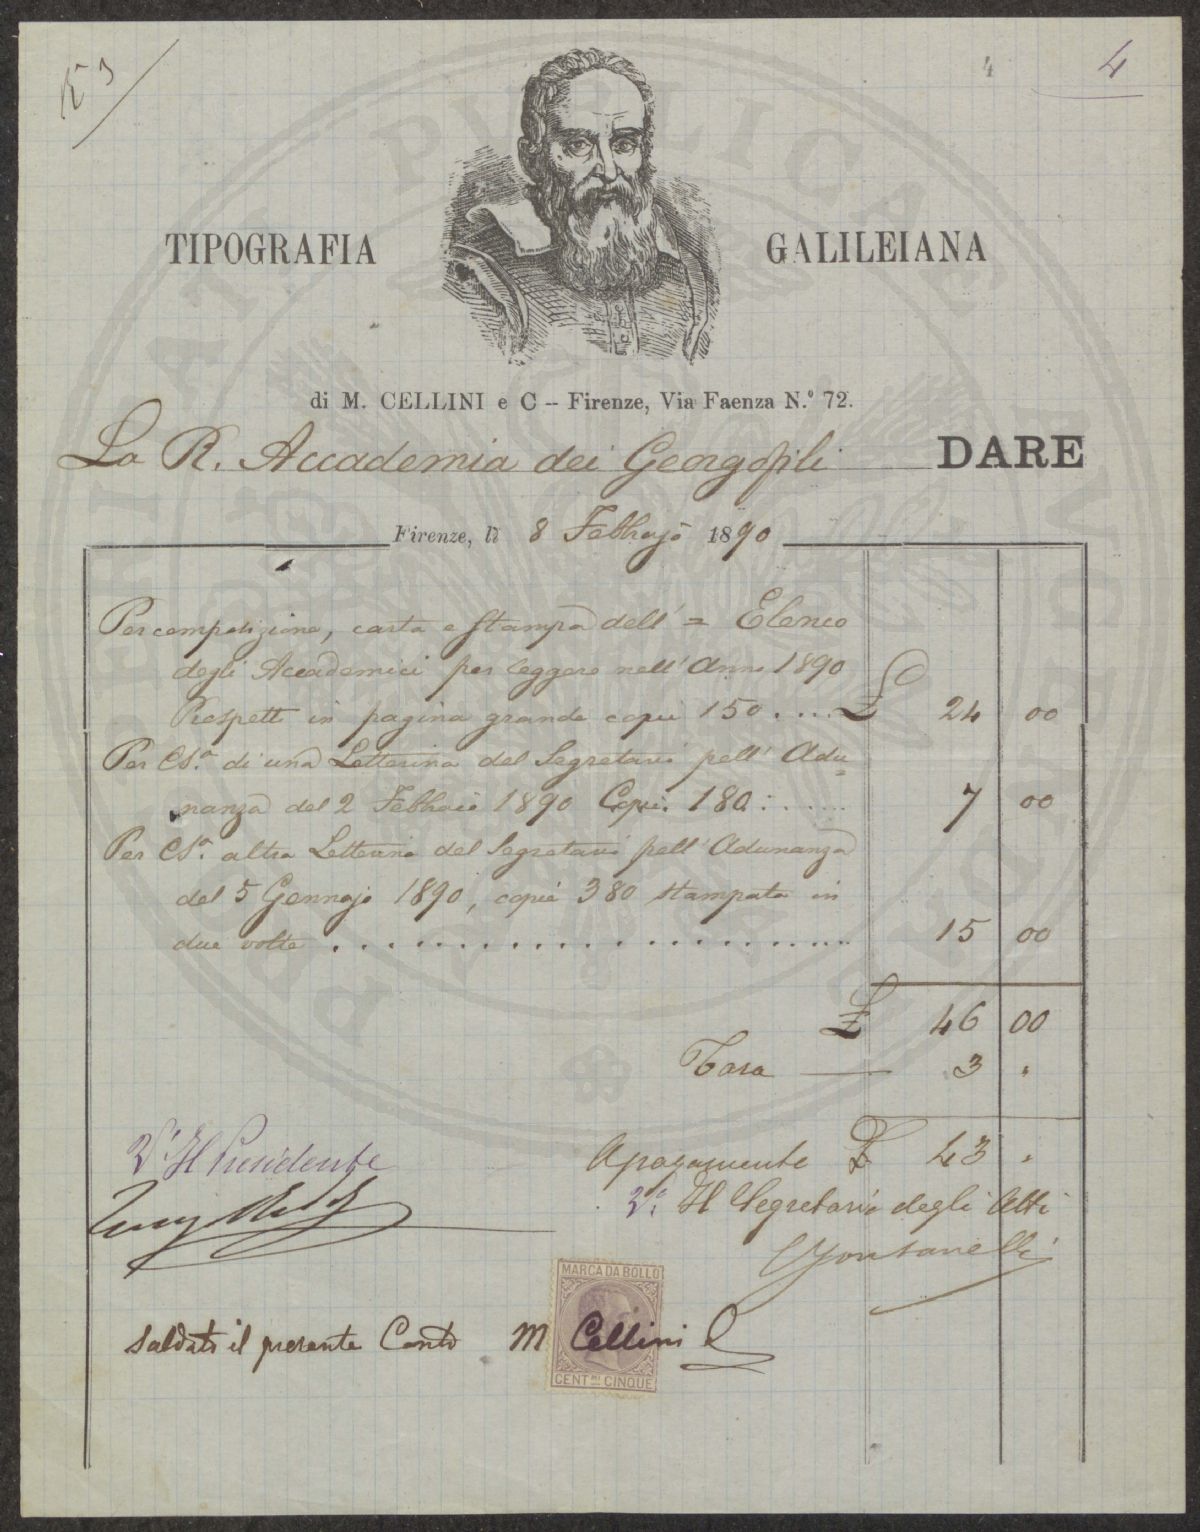 4
4
TIPOGRAFIA GALILEIANA
di M. CELLINI e C – Firenze, Via Faenza N.º 72.
La R. Accademia dei Georgofili DARE
Firenze, lì 8 Febbrajo 1890
Per composizione, carta e stampa dell' = Elenco
degli Accademici per leggere nell' Anno 1890
Prospetti in pagina grande copie 150 .... £ 24 00
Per Cs.ª di una Letterina del Segretario pell' Adu=
nanza del 2 Febbraio 1890 Copie. 180 : ...... 7 00
Per Cs.ª altra Letterina del Segretario pell' Adunanza
del 5 Gennajo 1890, copie 380 stampata in
due volte ........................ 15 00
£ 46 00
Tara — 3 "
V.º Il Presidente
Apagamente £ 43 "
V.º Il Segretario degli Atti
MARCA DA BOLLO
Saldato il presente Conto M Cellini
CENT.MI CINQUE